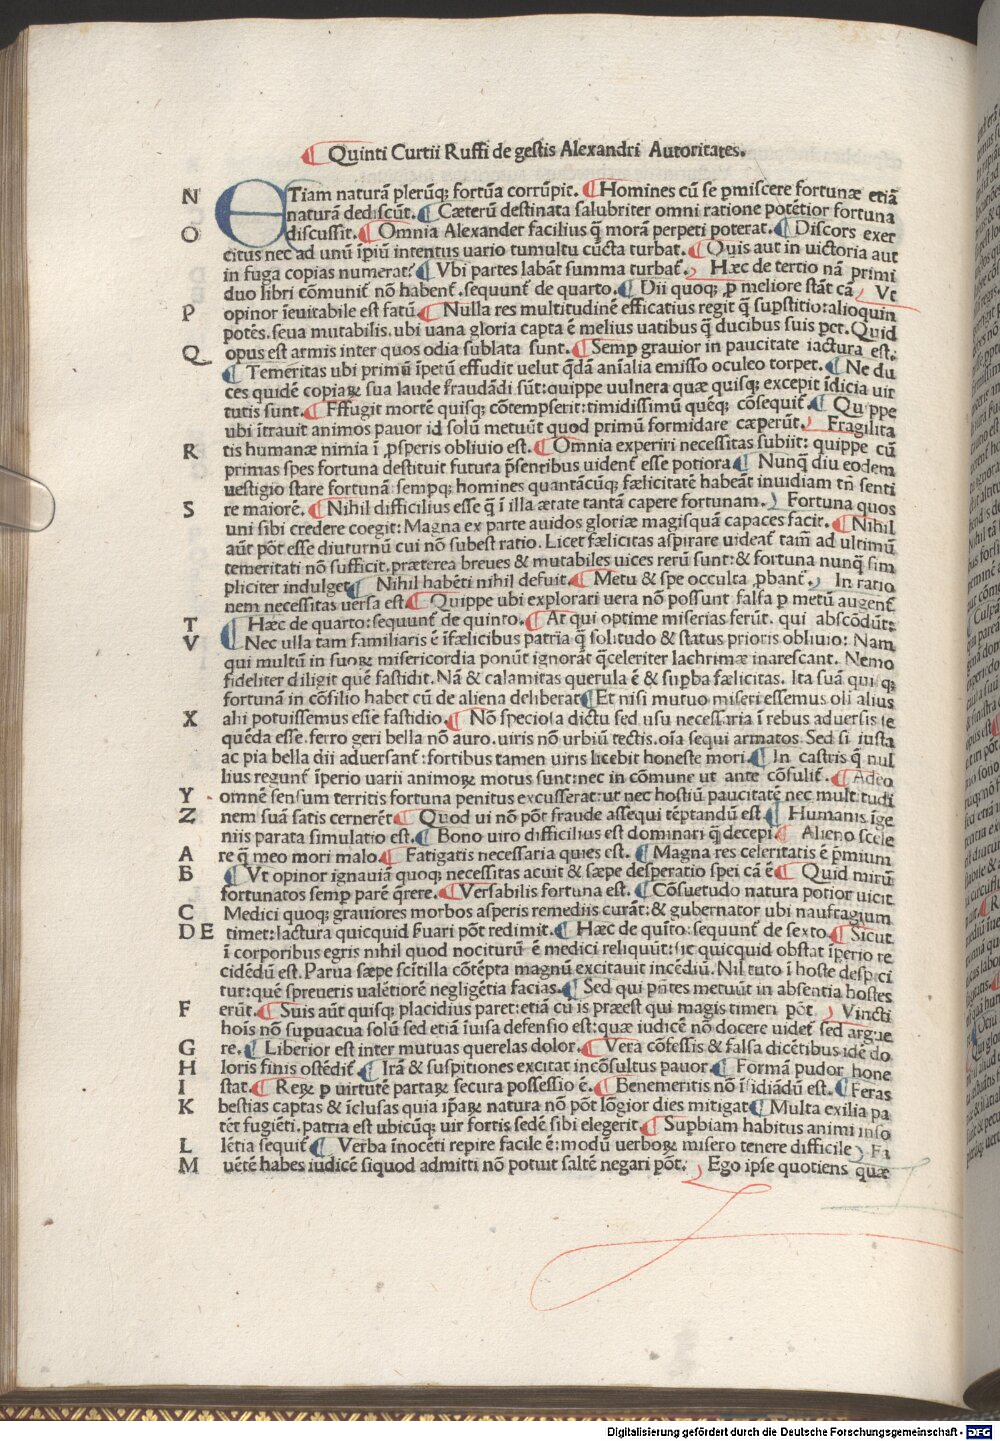 Quinti Curtii Ruffi de gestis Alexandri Autoritates.
N ETiam naturā plerūq; fortūa corrūpit. Homines cū se ꝑmiscere fortunæ etiā
naturā dediscūt. Cæterū destinata salubriter omni ratione potētior fortuna
O discussit. Omnia Alexander facilius q̄ morā perpeti poterat. Discors exer
citus nec ad unū īpiū intentus uario tumultu cūcta turbat. Quis aut in uictoria aut
in fuga copias numerat? Vbi partes labāt summa turbat̄. Hæc de tertio nā primi
duo libri cōmunit̄ nō habent̄. sequunt̄ de quarto. Dii quoq; ꝓ meliore stāt cā Vt
opinor īeuitabile est fatū. Nulla res multitudinē efficatius regit q̄ suꝑstitio: alioquin
P potēs. seua mutabilis. ubi uana gloria capta ē melius uatibus q̄ ducibus suis ꝑet. Quid
Q opus est armis inter quos odia sublata sunt. Semꝑ grauior in paucitate iactura est.
Temeritas ubi primū īpetū effudit uelut q̄dā aīalia emisso oculeo torpet. Ne du
ces quidē copiaꝝ sua laude fraudādi sūt: quippe uulnera quæ quisq; excepit īdicia uir
tutis sunt. Fffugit mortē quisq; cōtempserit: timidissimū quēq; cōsequit̄. Qu ppe
ubi ītrauit animos pauor id solū metuūt quod primū formidare cæperūt. Fragilita
R tis humanæ nimia ī ꝓsperis obliuio est. Omnia experiri necessitas subiit: quippe cū
primas spes fortuna destituit futura p̄sentibus uident̄ esse potiora. Nunq̄ diu eodem
uestigio stare fortunā: sempq; homines quantācūq; fælicitatē habeāt inuidiam tn̄ senti
S re maiorē. Nihil difficilius esse q̄ ī illa ætate tantā capere fortunam. Fortuna quos
uni sibi credere coegit: Magna ex parte auidos gloriæ magisquā capaces facit. Nihil
aūt pōt esse diuturnū cui nō subest ratio. Licet fælicitas aspirare uideat̄ tam̄ ad ultimū
temeritati nō sufficit. præterea breues & mutabiles uices rerū sunt: & fortuna nunq̄ sim
pliciter indulget Nihil habēti nihil defuit. Metu & spe occulta ꝓbant̄. In ratio
nem necessitas uersa est. Quippe ubi explorari uera nō possunt falsa ꝑ metū augent̄
T Hæc de quarto: sequunt̄ de quinto. At qui optime miserias ferūt. qui abscōdūt:
V Nec ulla tam familiaris ē īfælicibus patria q̄ solitudo & status prioris obliuio: Nam
qui multū in suoꝝ misericordia ponūt ignorāt q̄celeriter lachrimæ inarescant. Nemo
fideliter diligit quē fastidit. Nā & calamitas querula ē & suꝑba fælicitas. Ita suā qui q;
fortunā in cōsilio habet cū de aliena deliberat Et nisi mutuo miseri essemus oli alius
X alii potuissemus esse fastidio. Nō speciosa dictu sed usu necessaria ī rebus aduersis se
quēda esse. ferro geri bella nō auro. uiris nō urbiū tectis. oīa sequi armatos. Sed si iusta
ac pia bella dii aduersant̄: fortibus tamen uiris licebit honeste mori. In castris q̄ nul
lius regunt̄ īperio uarii animoꝝ motus sunt: nec in cōmune ut ante cōsulit̄. Adeo
Y omnē sensum territis fortuna penitus excusserat: ut nec hostiū paucitatē nec mult tudi
Z nem suā satis cernerēt Quod ui nō pōt fraude assequi tēptandū est Humanis īge
niis parata simulatio est. Bono uiro difficilius est dominari q̄ decepi. Alieno scele
A re q̄ meo mori malo. Fatigatis necessaria quies est. Magna res celeritatis ē p̄mium
B Vt opinor ignauiā quoq; necessitas acuit & sæpe desperatio spei cā ē Quid mirū
fortunatos semꝑ parē q̄rere. Versabilis fortuna est. Cōsuetudo natura potior uicit
C Medici quoq; grauiores morbos asperis remediis curāt: & gubernator ubi naufragium
D E timet: Iactura quicquid ſuari pōt redimit. Hæc de quīto: sequunt̄ de sexto. Sicut
ī corporibus egris nihil quod nociturū ē medici reliquūt: sic quicquid obstat īperio re
cidēdū est. Parua sæpe scītilla cōtēpta magnū excitauit incēdiū. Nil tuto ī hoste desp ci
tur: quē spreueris ualētiorē negligētia facias. Sed qui pn̄tes metuūt in absentia hostes
F erūt. Suis aūt quisq; placidius paret: etiā cū is præest qui magis timeri pōt. Vincti
hoīs nō supuacua solū sed etiā īuisa defensio est: quæ iudicē nō docere uidet̄ sed argue
G re. Liberior est inter mutuas querelas dolor. Vera cōfessis & falsa dicētibus idē do
H loris finis ostēdit̄ Irā & suspitiones excitat incōsultus pauor Formā pudor hone
I stat. Reꝝ ꝑ uirtutē partaꝝ secura possessio ē. Benemeritis nō īsidiādū est. Feras
K bestias captas & īclusas quia ip̄aꝝ natura nō pōt lōgior dies mitigat Multa exilia pa
tēt fugiēti. patria est ubicūq; uir fortis sedē sibi elegerit Suꝑbiam habitus animi inso
L lētia sequit̄ Verba īnocēti reꝑire facile ē: modū uerboꝝ misero tenere difficile Fa
M uētē habes iudicē siquod admitti nō potuit saltē negari pōt. Ego ipse quotiens quæ
Digitalisierung gefördert durch die Deutsche Forschungsgemeinschaft - DFG